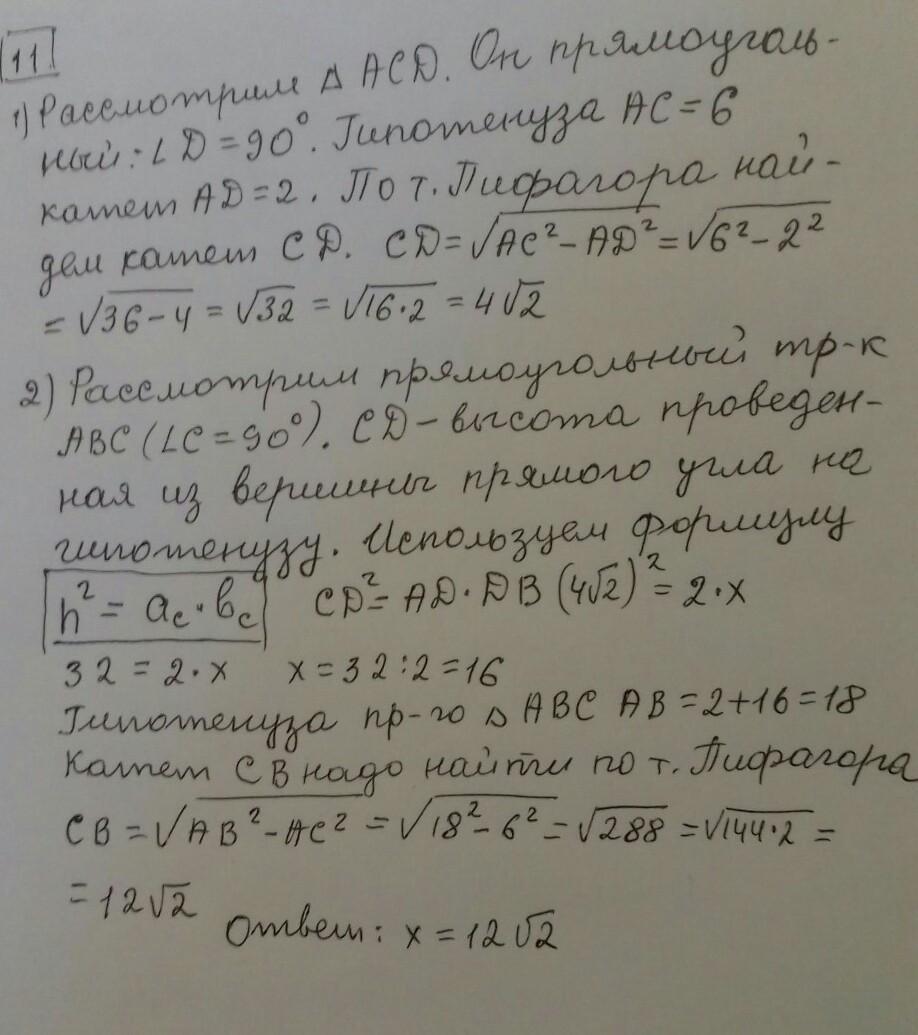 11
1) Рассмотрим △ ACD. Он прямоуголь-
ный: ∠D = 90°. Гипотенуза AC = 6
катет AD = 2. По т. Пифагора най-
дем катет CD. CD = √AC² − AD² = √6² − 2²
= √36 − 4 = √32 = √16·2 = 4√2
2) Рассмотрим прямоугольный тр-к
ABC (∠C = 90°). CD – высота проведен-
ная из вершины прямого угла на
гипотенузу. Используем формулу
h² = a_c · b_c CD² = AD · DB (4√2)² = 2·x
32 = 2·x x = 32 : 2 = 16
Гипотенуза пр-го △ ABC AB = 2+16 = 18
Катет CB надо найти по т. Пифагора
CB = √AB² − AC² = √18² − 6² = √288 = √144·2 =
= 12√2
Ответ: x = 12√2